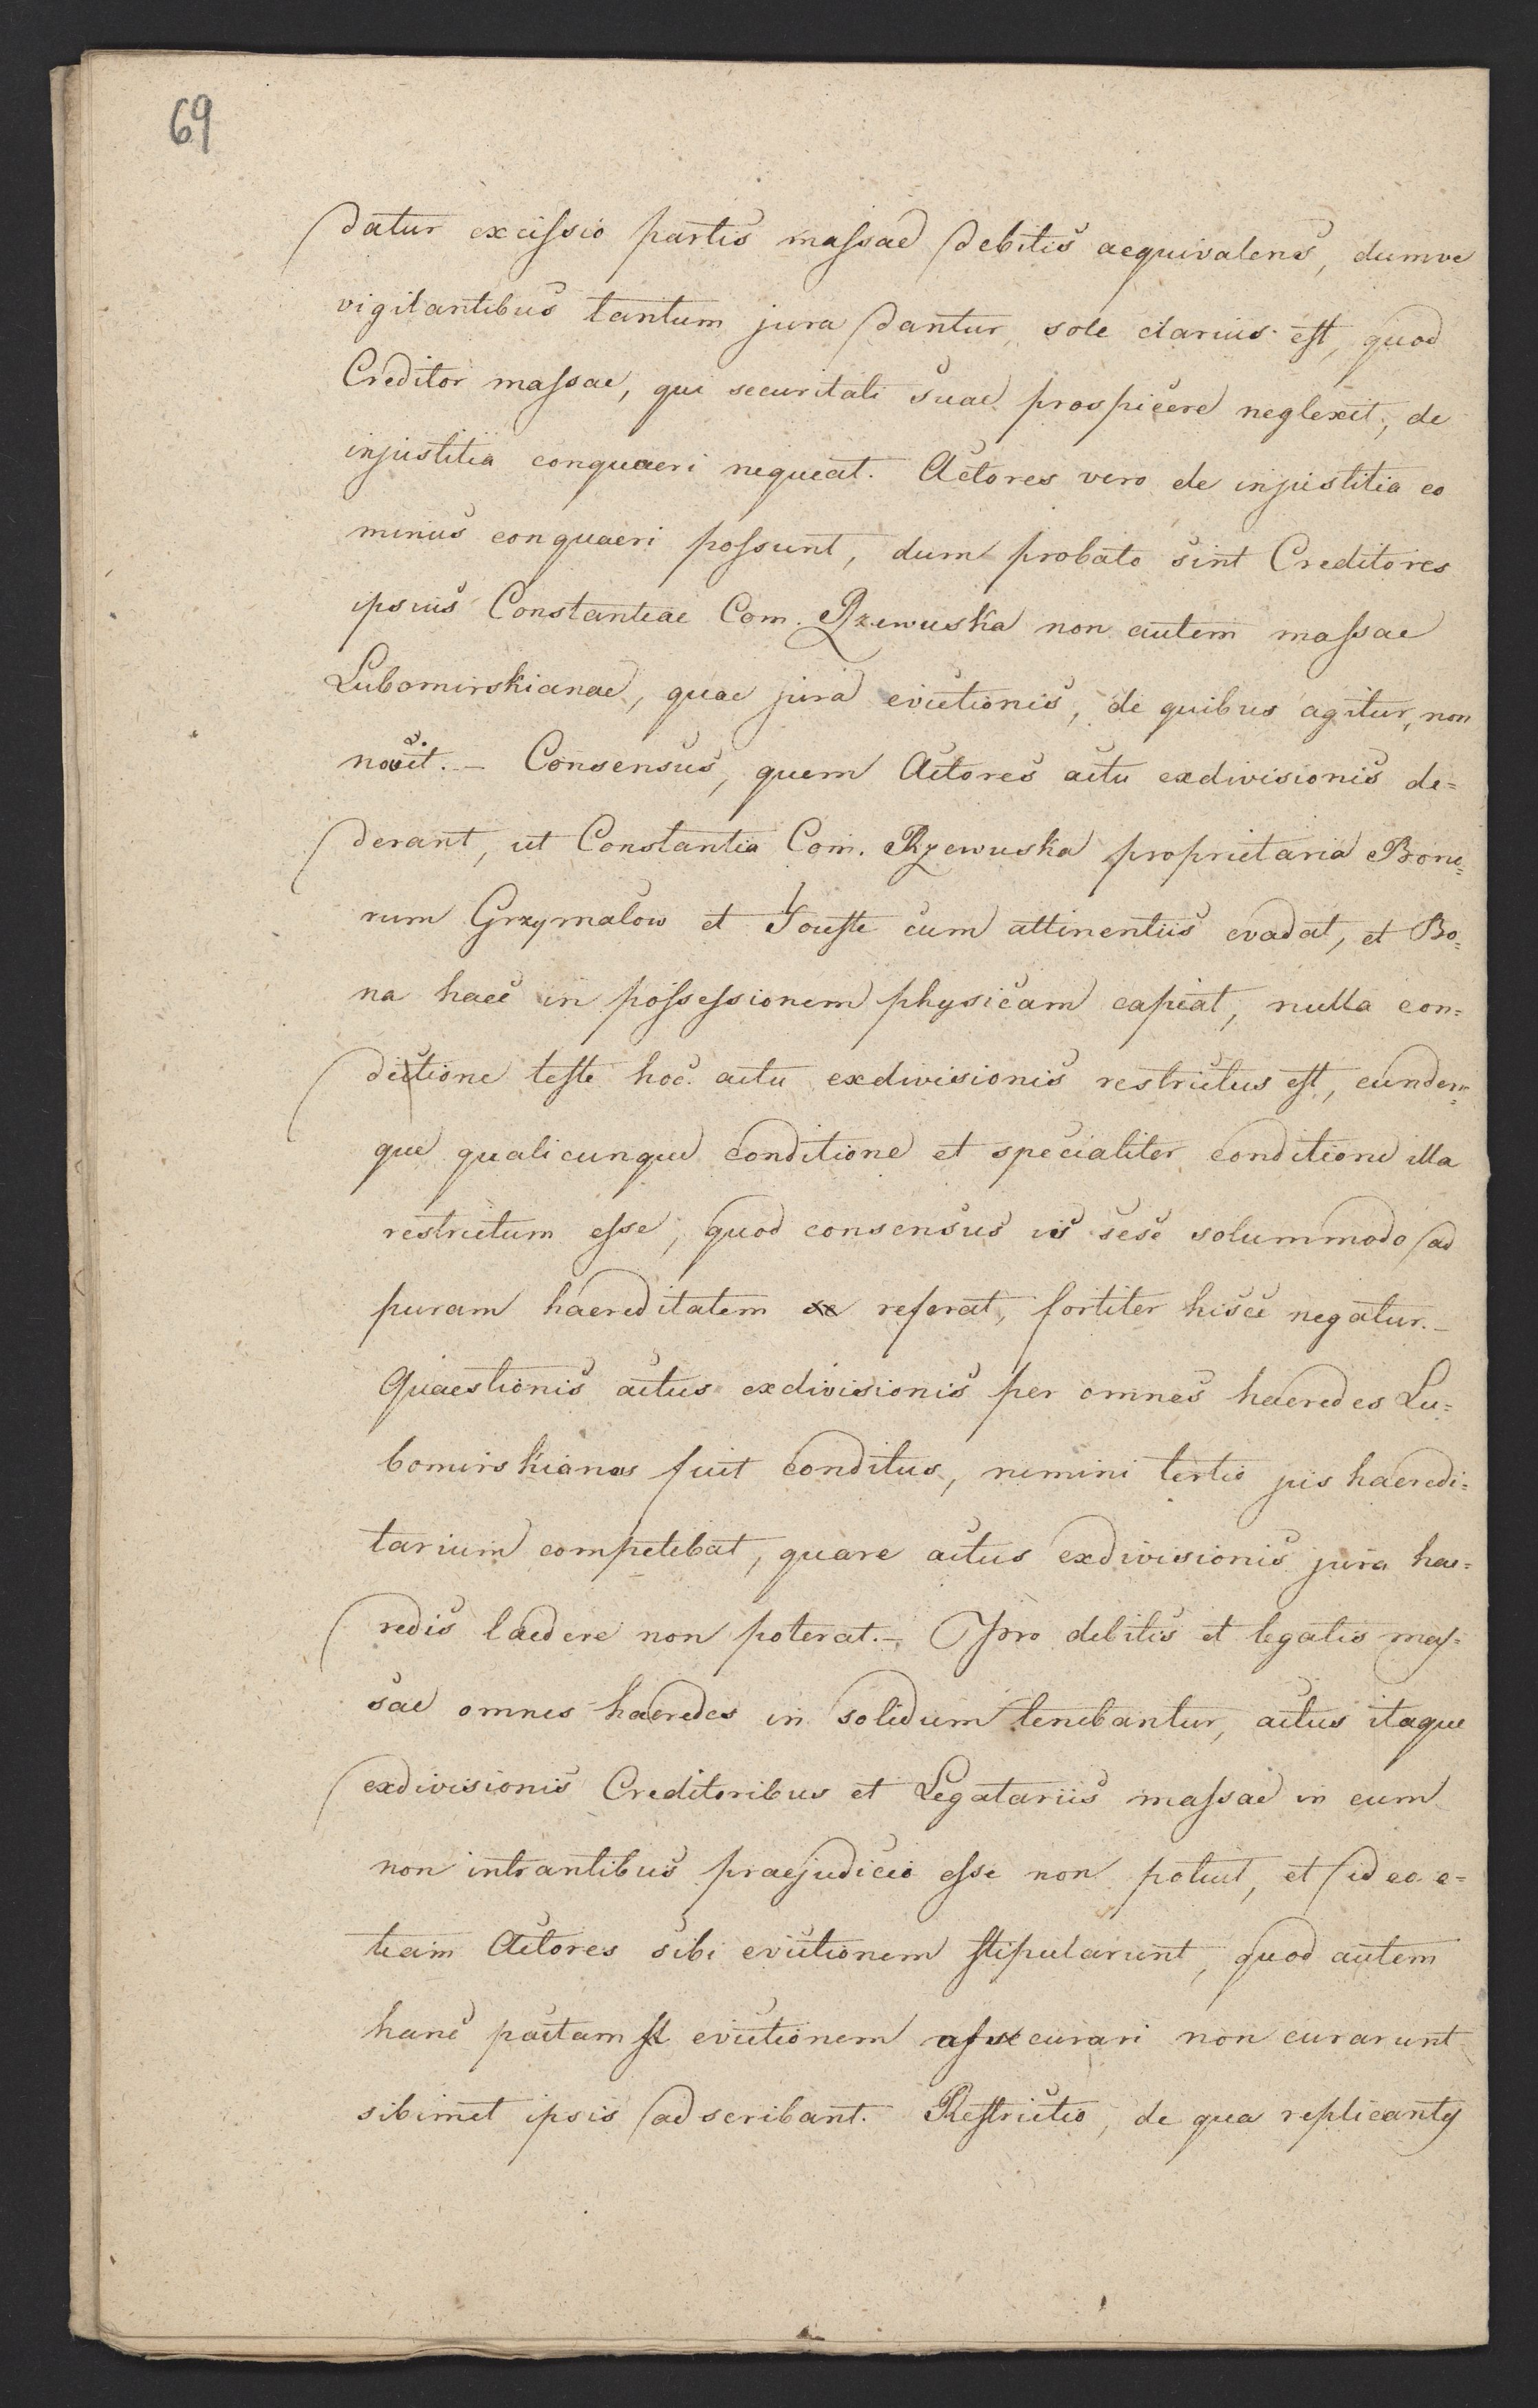 69
datur excissio partis massae debitis aequivalens, dumve
vigilantibus tantum jura dantur, sole clarius est, quod
Creditor massae, qui securitati suae prospicere neglexit, de
injustitia conquaeri nequeat. Actores vero de injustitia eo
minus conquaeri possunt, dum probato sint Creditores
ipsius Constantiae Com. Rzewuska non autem massae
Lubomirskianae, quae jura evictionis, de quibus agitur, non
novit. – Consensus, quem Actores actu exdivisionis de=
derant, ut Constantia Com. Rzewuska proprietaria Bono=
rum Grzymalow et Touste cum attinentiis evadat, et Bo=
na haec in possessionem physicam capiat, nulla con=
ditione teste hoc actu exdivisionis restrictus est, eundem=
que qualicunque conditione et specialiter conditione illa
restrictum esse, quod consensus is sese solummodo ad
puram haereditatem referat, fortiter hisce negatur. –
Quaestionis actus exdivisionis per omnes haeredes Lu=
bomirskianos fuit conditus, nemini tertio jus haeredi=
tarium competebat, quare actus exdivisionis jura hae=
redis laedere non poterat. – Pro debitis et legatis mas=
sae omnes haeredes in solidum tenebantur, actus itaque
exdivisionis Creditoribus et Legatariis massae in eum
non intrantibus praejudicio esse non potuit, et ideo e=
tiam Actores sibi evictionem stipularunt, quod autem
hanc pactam evictionem assecurari non curarunt
sibimet ipsis adscribant. Restrictio, de qua replicantes